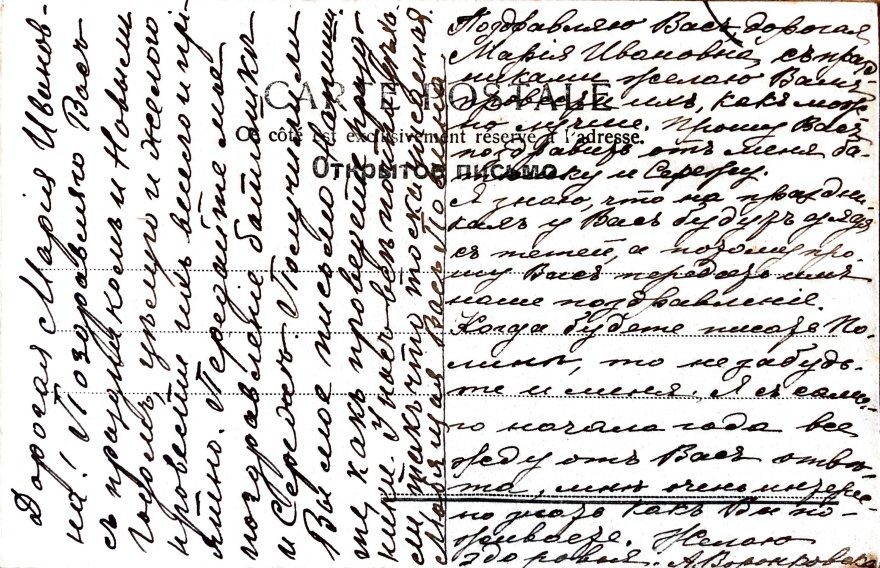 CARTE POSTALE
Ce côté est exclusivement réservé à l'adresse.
Открытое письмо.
Дорогая Марія Иванов-
на! Поздравляю Васъ
съ праздникомъ и Новымъ
годомъ, усердно и желаю
провести ихъ весело и прі-
ятно. Передайте мое
поздравленіе батюшкѣ
и Сережѣ. Получили ли
Вы мое письмо? Напиши-
те какъ проведете празд-
ники. У насъ
такъ что тоска
Любящая Васъ
Поздравляю Васъ, дорогая
Марія Ивановна, съ празд
никами желаю Вамъ
провести ихъ, какъ мож-
но лучше. Прошу Васъ
поздравить отъ меня ба-
тюшку и Сережу.
Я знаю, что на праздни-
кахъ у Васъ будутъ дядя
съ тетей, а потому про-
шу Васъ передать имъ
наше поздравленіе.
Когда будете писать По-
линѣ, то не забудь-
те и меня. Я съ само-
го начала года все
жду отъ Васъ отвѣ-
та, мнѣ очень интерес-
но знать какъ Вы по-
живаете. Желаю
здоровья. А.